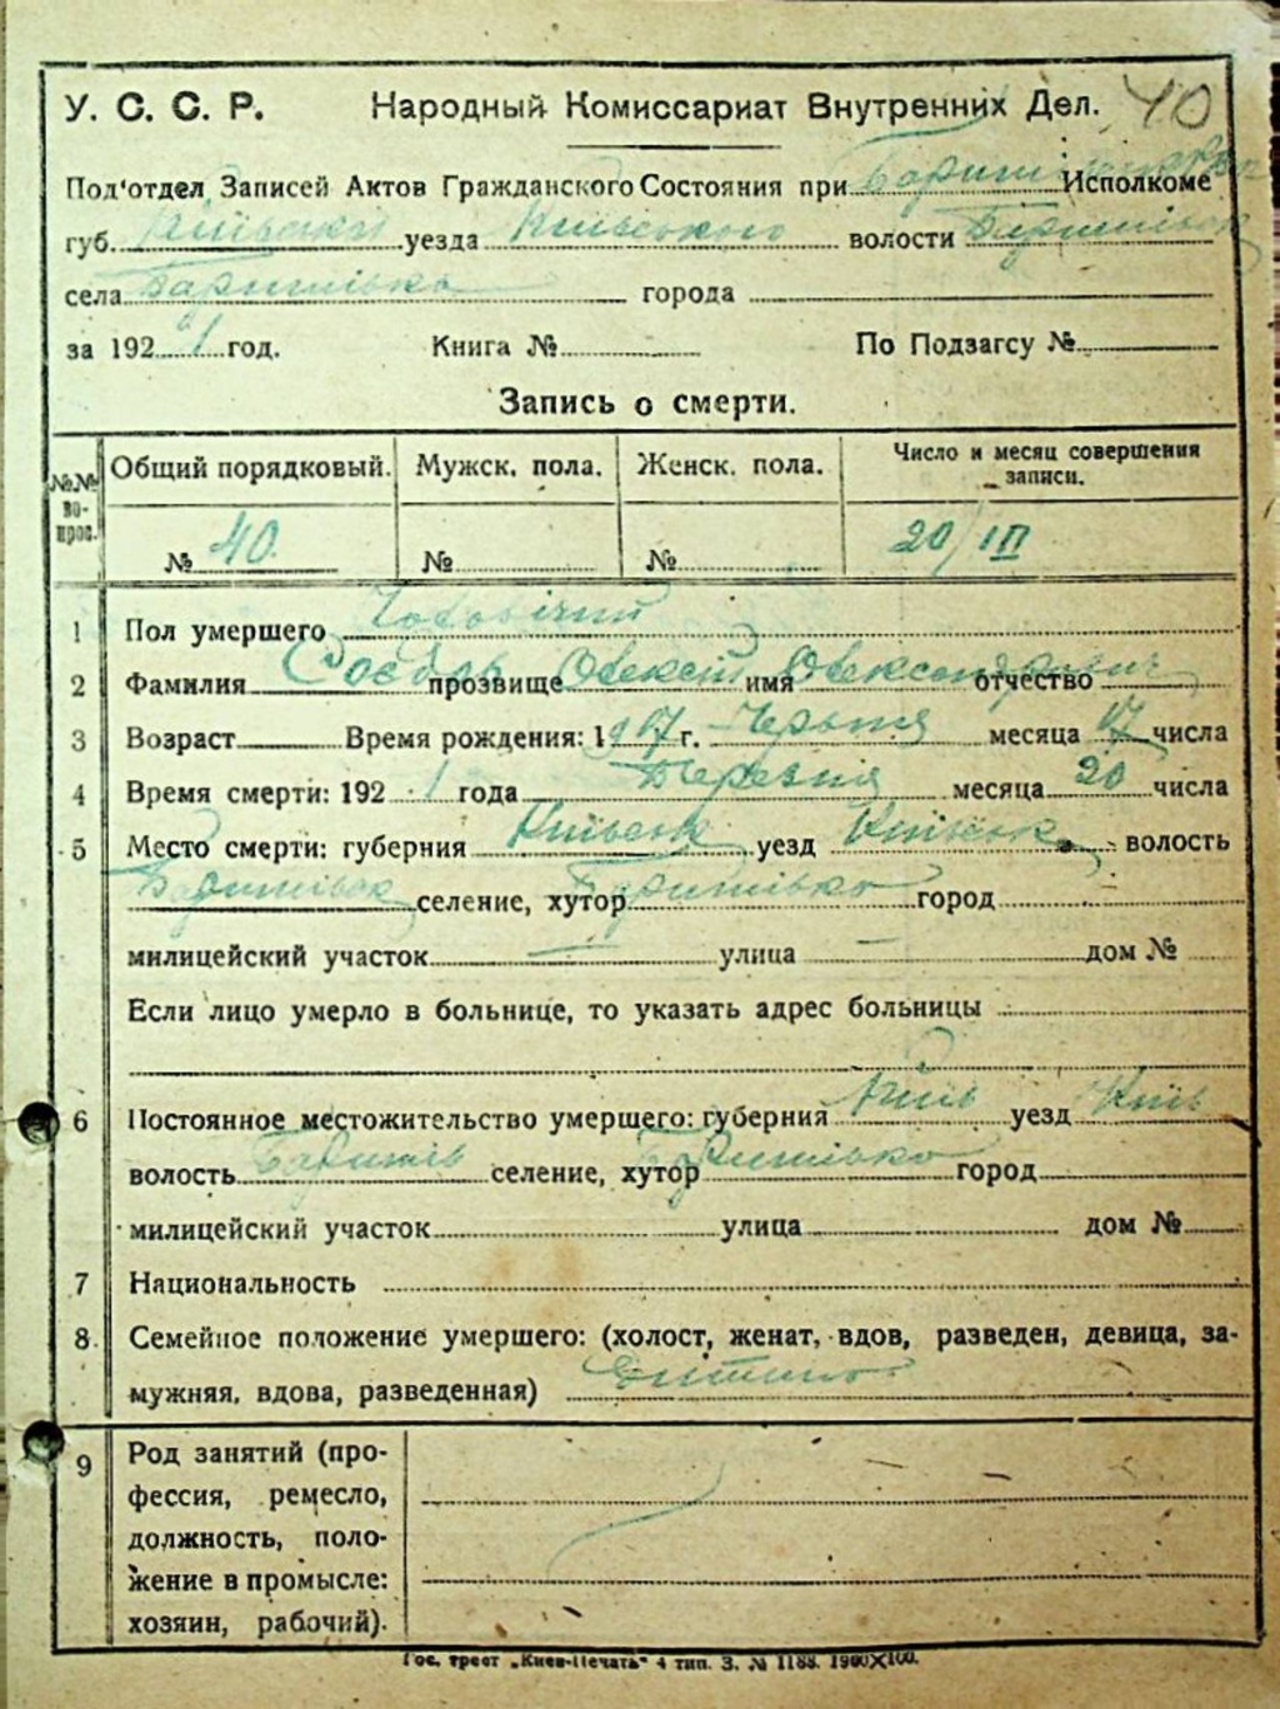 У. С. С. Р. Народный Комиссариат Внутренних Дел. 40
Под'отдел Записей Актов Гражданского Состояния при Исполкоме
губ. уезда Київського волости
села Баришівка города
за 192 1 год. Книга № По Подзагсу №
Запись о смерти.
№№ вопрос. Общий порядковый. Мужск. пола. Женск. пола. Число и месяц совершения записи.
№ 40. № № 20/III
1 Пол умершего Чоловічий
2 Фамилия прозвище Олексій имя Олександрович отчество
3 Возраст Время рождения: 1907 г. Червня месяца 17 числа
4 Время смерти: 192 1 года Березня месяца 20 числа
5 Место смерти: губерния Київськ уезд Київськ волость
Баришівськ селение, хутор Баришівка город
милицейский участок — улица — дом №
Если лицо умерло в больнице, то указать адрес больницы
6 Постоянное местожительство умершего: губерния Київ уезд Київ
волость Баришів селение, хутор Баришівка город
милицейский участок улица дом №
7 Национальность
8. Семейное положение умершего: (холост, женат, вдов, разведен, девица, за-
мужняя, вдова, разведенная) Дитина
9 Род занятий (про-
фессия, ремесло,
должность, поло-
жение в промысле:
хозяин, рабочий).
Гос. трест „Киев-Печать" 4 тип. З. № 1188. 1900×100.